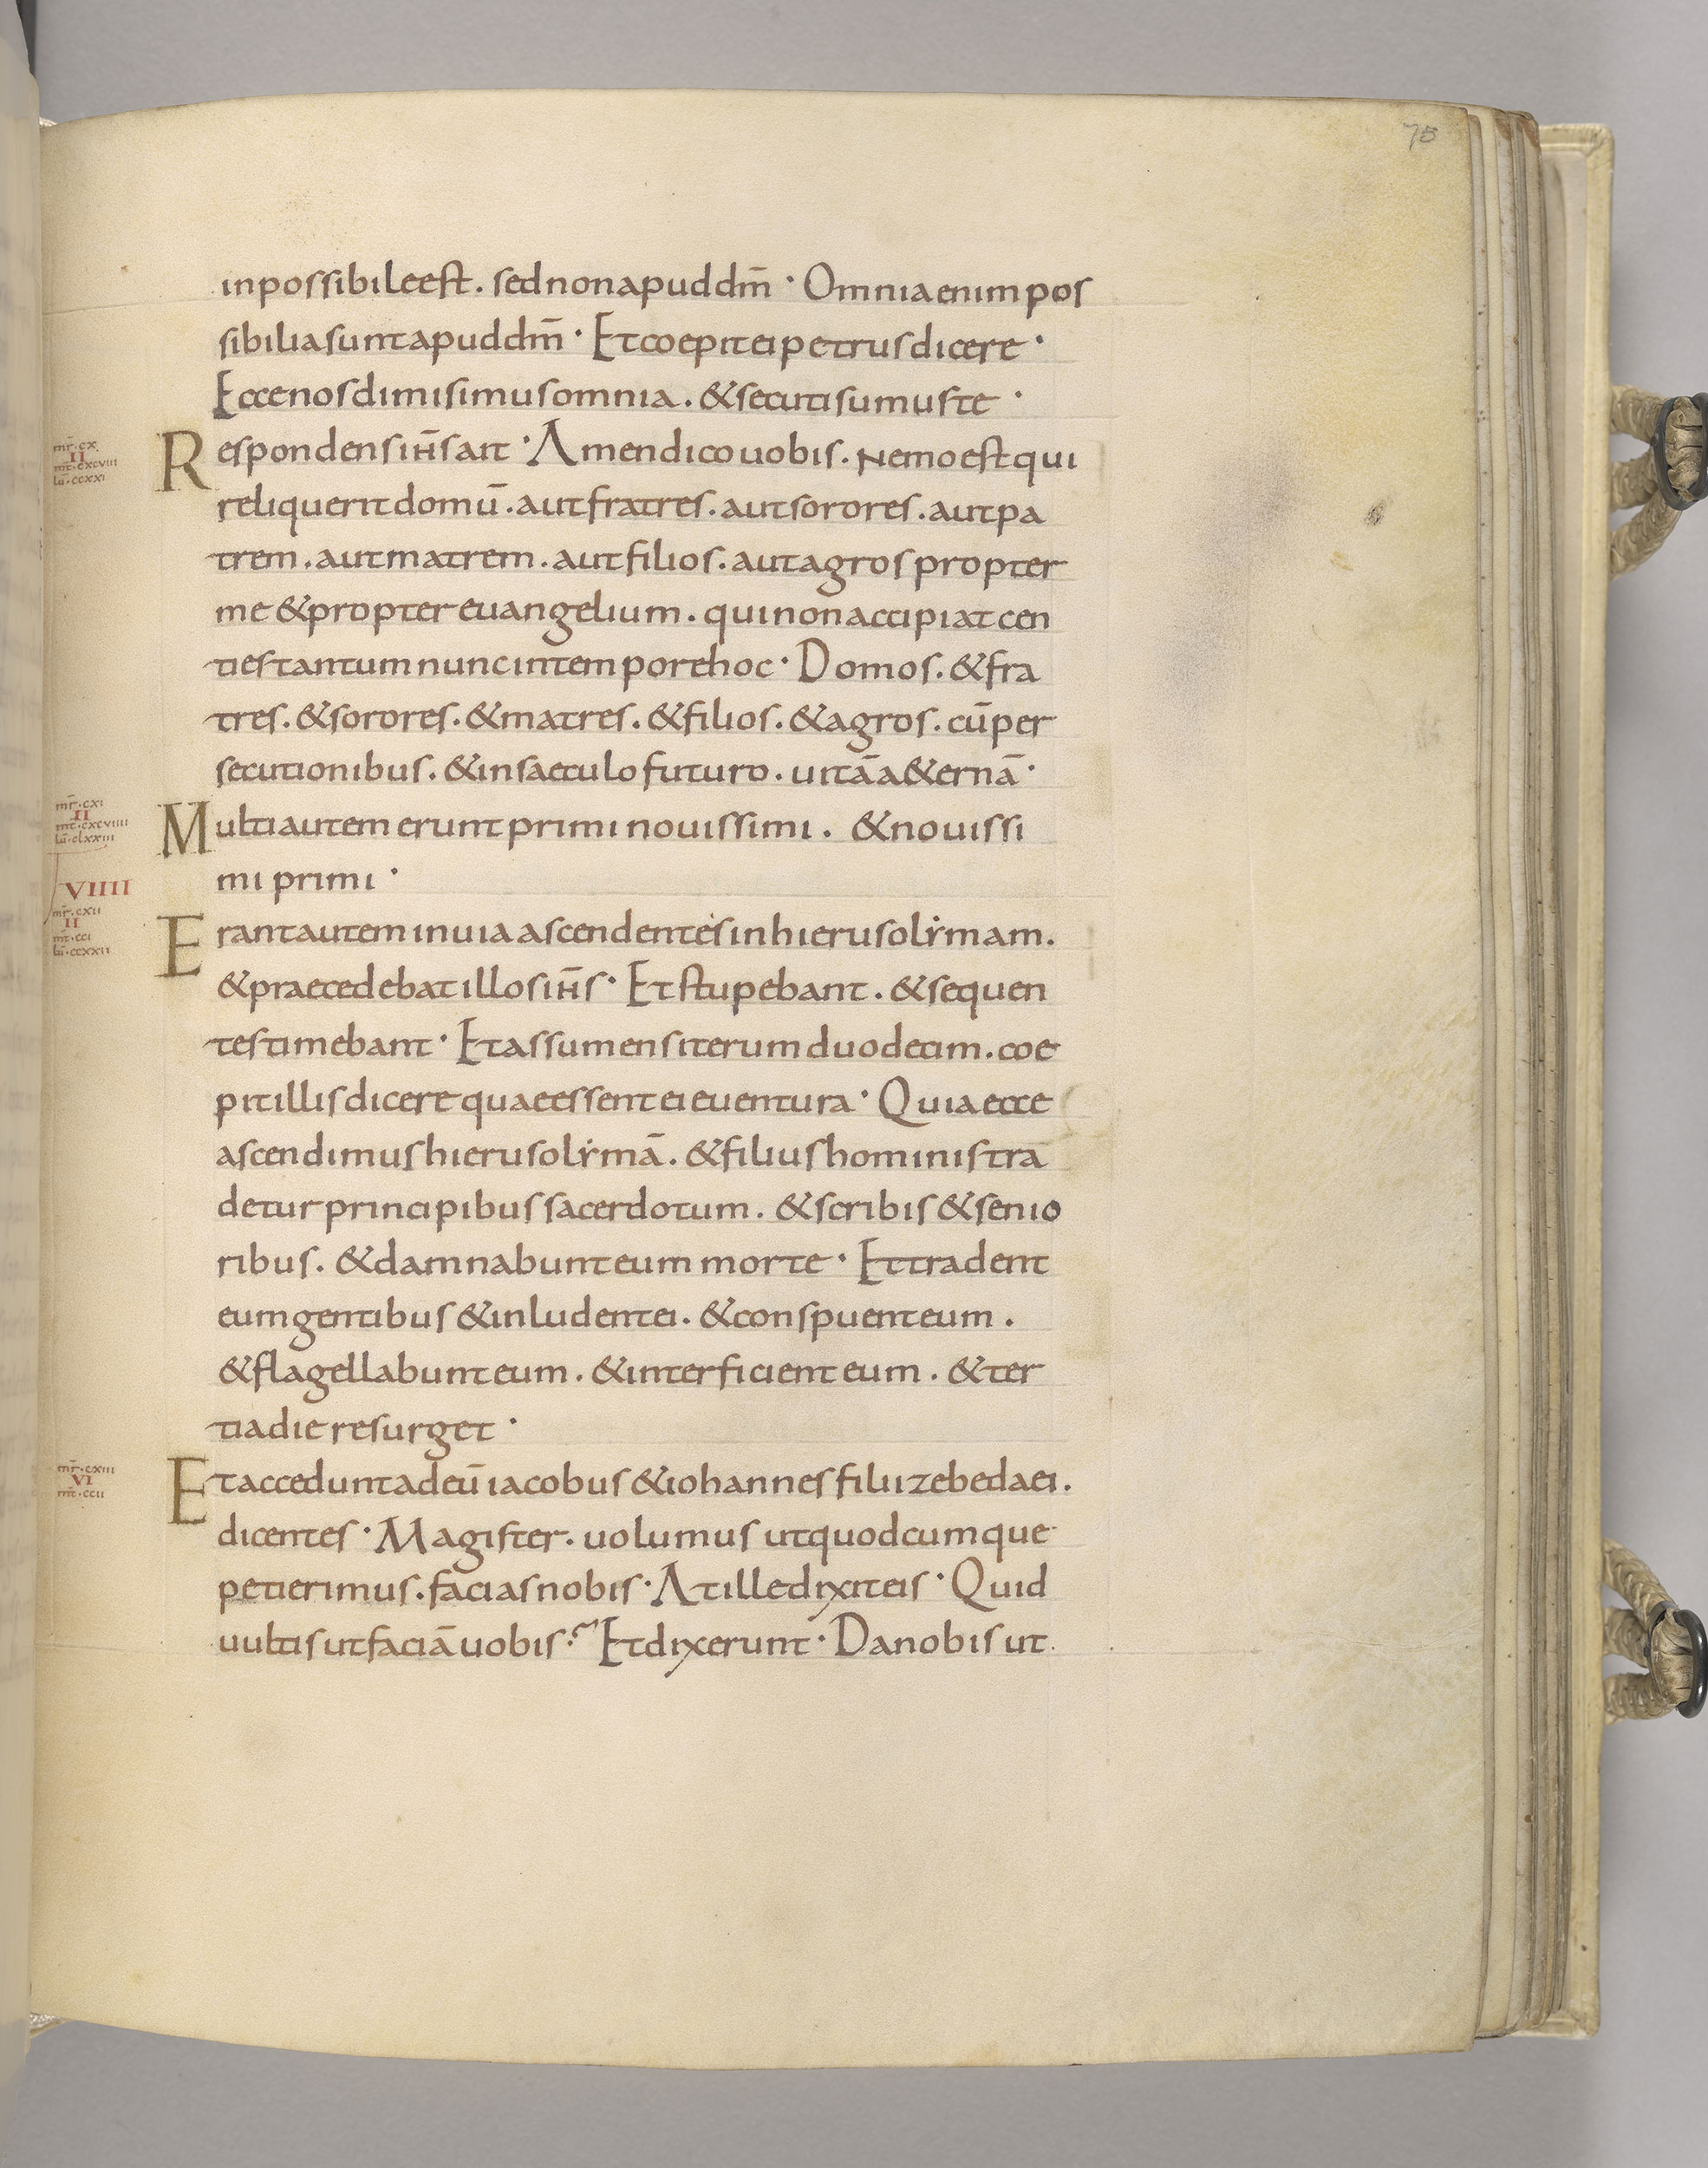 75
inpossibile est. sed non apud dm̄ · Omnia enim pos
sibilia sunt apud dm̄ · Et coepit ei petrus dicere ·
Ecce nos dimisimus omnia. & secuti sumus te ·
mr̄·cx·
II
mt̄·cxcviii
lū·ccxxi
Respondens ih̄s ait · Amen dico uobis. Nemo est qui
reliquerit domū. aut fratres. aut sorores. aut pa
trem. aut matrem. aut filios. aut agros propter
me & propter euangelium. qui non accipiat cen
ties tantum nunc in tempore hoc · Domos. & fra
tres. & sorores. & matres. & filios. & agros. cū per
secutionibus. & in saeculo futuro. uitā a&ernā ·
mr̄·cxi
II
mt̄·cxcviiii
lū·clxxiii
Multi autem erunt primi nouissimi. & nouissi
mi primi ·
VIIII
mr̄·cxii
II
mt̄·cci
lū·ccxxii
Erant autem in uia ascendentes in hierusolẏmam.
& praecedebat illos ih̄s · Et stupebant. & sequen
tes timebant · Et assumens iterum duodecim. coe
pit illis dicere quae essent ei euentura · Quia ecce
ascendimus hierusolẏmā. & filius hominis tra
detur principibus sacerdotum. & scribis & senio
ribus. & damnabunt eum morte · Et tradent
eum gentibus & inludent ei. & conspuent eum.
& flagellabunt eum. & interficient eum. & ter
tia die resurget ·
mr̄·cxiii
VI
mt̄·ccii
Et accedunt ad eū iacobus & iohannes filii zebedaei.
dicentes · Magister. uolumus ut quodcumque
petierimus. facias nobis · At ille dixit eis · Quid
uultis ut faciā uobis? Et dixerunt · Da nobis ut